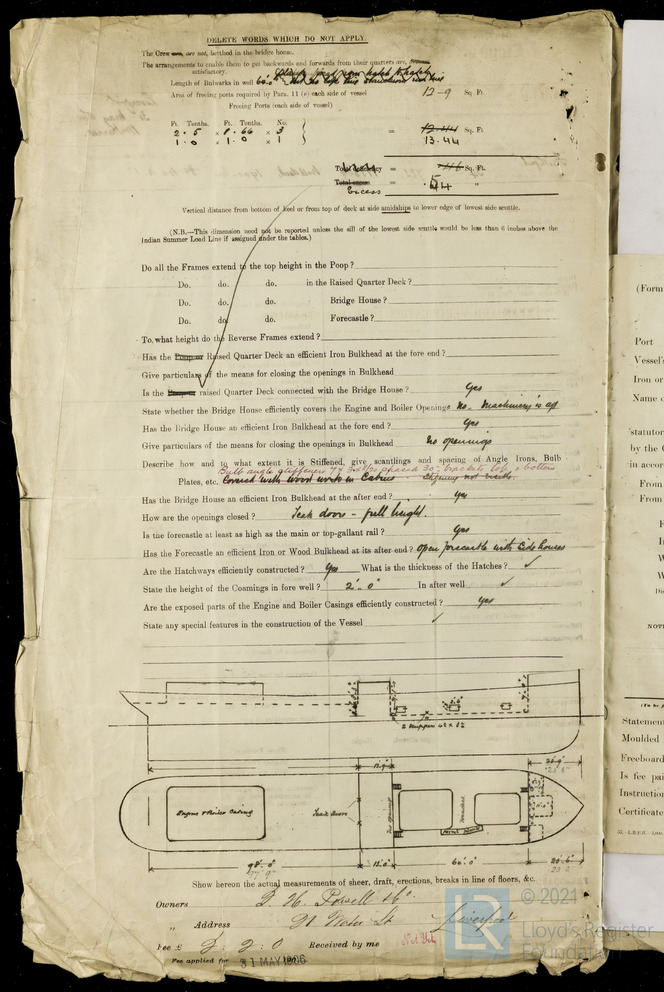 DELETE WORDS WHICH DO NOT APPLY.
The Crew are, are not, berthed in the bridge house.
The arrangements to enable them to get backwards and forwards from their quarters are,
satisfactory.
Length of Bulwarks in well 60.0
Area of freeing ports required by Para. 11 (e) each side of vessel 12-9 Sq. Ft.
Freeing Ports (each side of vessel)
Ft. Tenths. Ft. Tenths. No.
2 . 5 × 1 . 66 × 3 = 12.44 Sq. Ft.
1 . 0 × 1 . 0 × 1 13.44
Total deficiency = .46 Sq. Ft.
Total excess = .54 "
Excess
Vertical distance from bottom of keel or from top of deck at side amidships to lower edge of lowest side scuttle.
(N.B.—This dimension need not be reported unless the sill of the lowest side scuttle would be less than 6 inches above the
Indian Summer Load Line if assigned under the tables.)
Do all the Frames extend to the top height in the Poop?
Do. do. do. in the Raised Quarter Deck?
Do. do. do. Bridge House?
Do. do. do. Forecastle?
To what height do the Reverse Frames extend?
Has the Poop or Raised Quarter Deck an efficient Iron Bulkhead at the fore end?
Give particulars of the means for closing the openings in Bulkhead
Is the Poop or raised Quarter Deck connected with the Bridge House? Yes
State whether the Bridge House efficiently covers the Engine and Boiler Openings No - Machinery is aft
Has the Bridge House an efficient Iron Bulkhead at the fore end? Yes
Give particulars of the means for closing the openings in Bulkhead No openings
Describe how and to what extent it is Stiffened, give scantlings and spacing of Angle Irons, Bulb
Bulb angle stiffeners spaced 30" brackets top & bottom
Plates, etc. Covered with wood work in Cabins
Has the Bridge House an efficient Iron Bulkhead at the after end? Yes
How are the openings closed? Teak doors - full height.
Is the forecastle at least as high as the main or top-gallant rail? Yes
Has the Forecastle an efficient Iron or Wood Bulkhead at its after end? Open forecastle with Side houses
Are the Hatchways efficiently constructed? Yes What is the thickness of the Hatches? ✓
State the height of the Coamings in fore well? 2'. 0" In after well ✓
Are the exposed parts of the Engine and Boiler Casings efficiently constructed? Yes
State any special features in the construction of the Vessel ✓
Engine & Boiler Casing
Teak doors
98'. 0"
12'. 0"
60'. 0"
20'. 6"
Show hereon the actual measurements of sheer, draft, erections, breaks in line of floors, &c.
Owners F. H. Powell & Co.
" Address 21 Water St. Liverpool
Fee £ 2 : 2 : 0 Received by me
Fee applied for 31 MAY 1906
(Form
Port
Vessel's
Iron or
Name
statutor
by the
in accor
From
From
NOTE
Statement
Moulded
Freeboard
Is fee pai
Instruction
Certificate
© 2021
LR
Lloyd's Register
Foundation